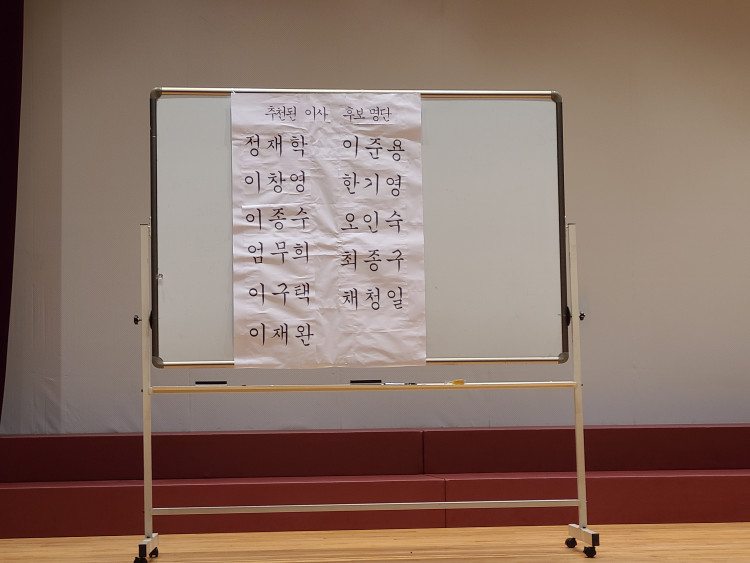 추천된 이사 후보 명단
정재학 이준용
이창영 한기영
이종수 오인숙
엄무희 최종구
이구택 채청일
이재완